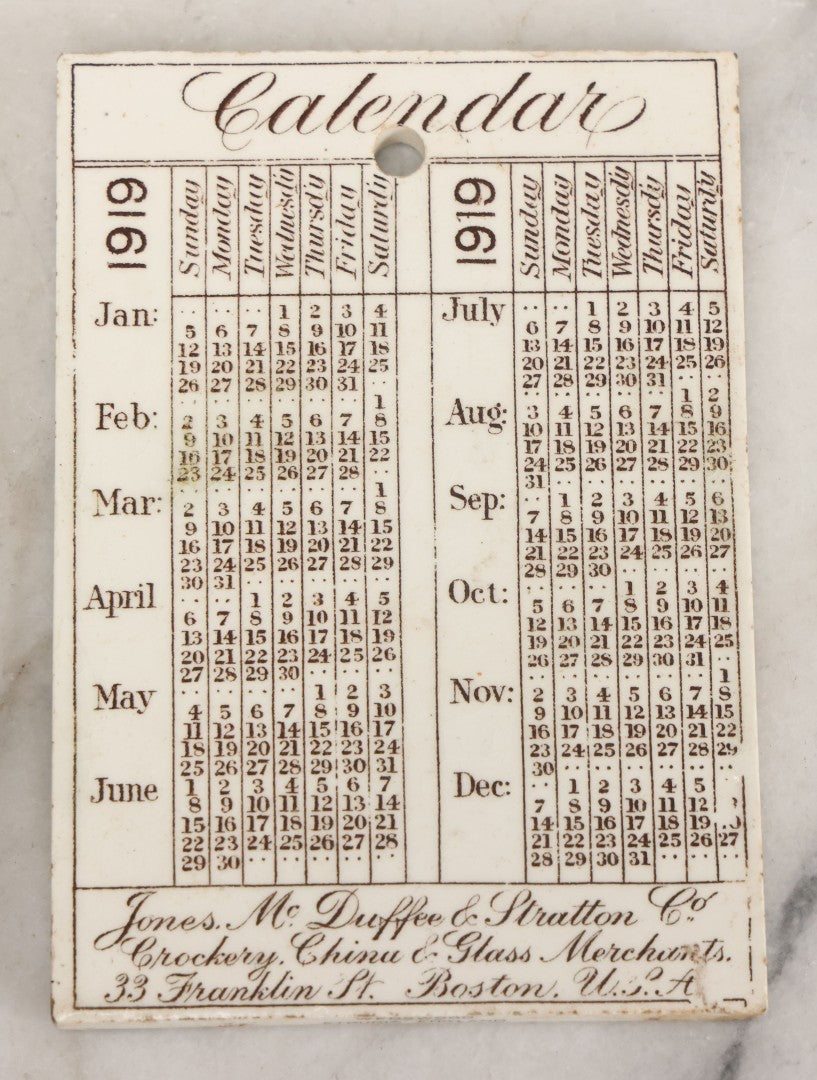 Calendar
1919 Sunday Monday Tuesday Wednesdy Thursdy Friday Saturdy
Jan: 1 2 3 4
5 6 7 8 9 10 11
12 13 14 15 16 17 18
19 20 21 22 23 24 25
26 27 28 29 30 31
Feb: 1
2 3 4 5 6 7 8
9 10 11 12 13 14 15
16 17 18 19 20 21 22
23 24 25 26 27 28
Mar: 1
2 3 4 5 6 7 8
9 10 11 12 13 14 15
16 17 18 19 20 21 22
23 24 25 26 27 28 29
30 31
April 1 2 3 4 5
6 7 8 9 10 11 12
13 14 15 16 17 18 19
20 21 22 23 24 25 26
27 28 29 30
May 1 2 3
4 5 6 7 8 9 10
11 12 13 14 15 16 17
18 19 20 21 22 23 24
25 26 27 28 29 30 31
June 1 2 3 4 5 6 7
8 9 10 11 12 13 14
15 16 17 18 19 20 21
22 23 24 25 26 27 28
29 30
1919 Sunday Monday Tuesday Wednesdy Thursdy Friday Saturdy
July 1 2 3 4 5
6 7 8 9 10 11 12
13 14 15 16 17 18 19
20 21 22 23 24 25 26
27 28 29 30 31
Aug: 1 2
3 4 5 6 7 8 9
10 11 12 13 14 15 16
17 18 19 20 21 22 23
24 25 26 27 28 29 30
31
Sep: 1 2 3 4 5 6
7 8 9 10 11 12 13
14 15 16 17 18 19 20
21 22 23 24 25 26 27
28 29 30
Oct: 1 2 3 4
5 6 7 8 9 10 11
12 13 14 15 16 17 18
19 20 21 22 23 24 25
26 27 28 29 30 31
Nov: 1
2 3 4 5 6 7 8
9 10 11 12 13 14 15
16 17 18 19 20 21 22
23 24 25 26 27 28 29
30
Dec: 1 2 3 4 5
7 8 9 10 11 12
14 15 16 17 18 19
21 22 23 24 25 26 27
28 29 30 31
Jones. Mc Duffee & Stratton Co.
Crockery. China & Glass Merchants.
33 Franklin St. Boston. U.S.A